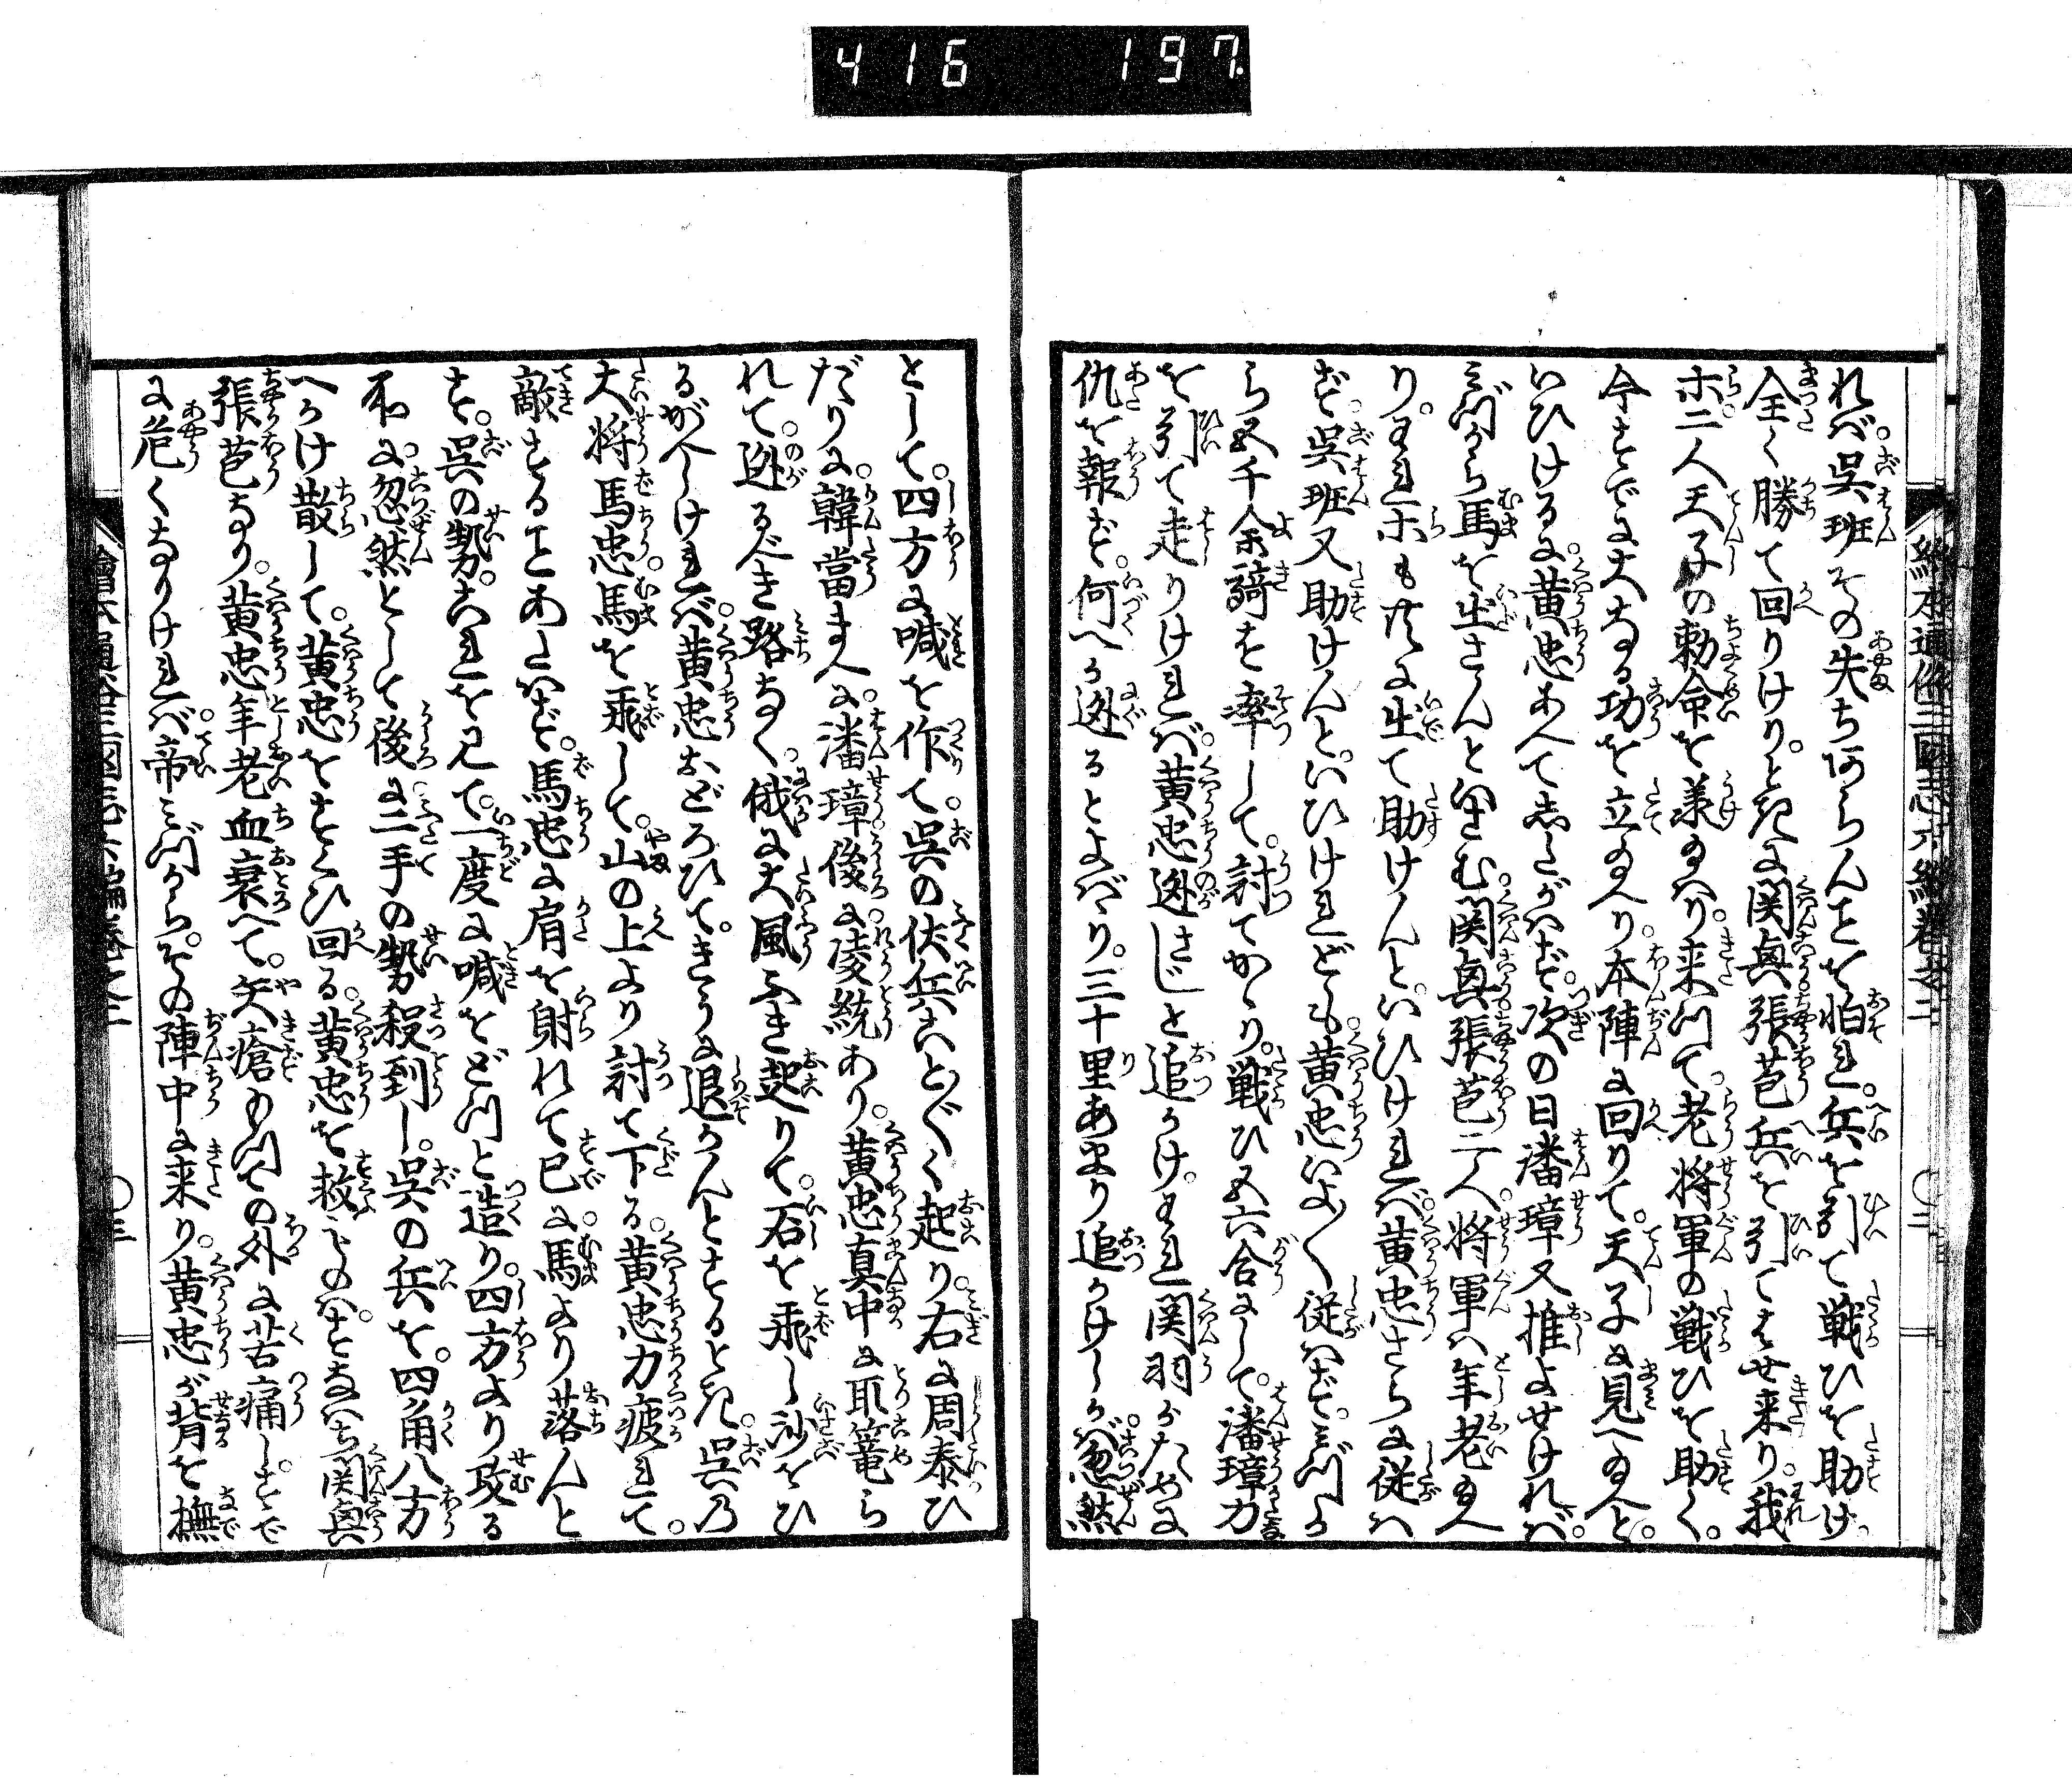 416 197.
繪本通俗三國志六編巻之二
〇二
れバ。呉班その失ち阿らんことを怕れ。兵を引て戦ひを助け。
全く勝て回りけり。とき尓関興張苞兵を引てはせ来り。我
ホ二人天子の勅命を羕給ハり。来つて。老将軍の戦ひを助く。
今すでに大なる功を立給へり。本陣に回りて。天子に見へ給へと。
いひける尓。黄忠あへて志たがハず。次の日潘璋又推よせけれバ。
ミづから馬を出さんといさむ。関興張苞二人。将軍ハ年老給へ
り。われホも共に出て助けんと。いひけれバ。黄忠さらに従ハ
ず。呉班又助けんと。いひけれども。黄忠いよ〱従ハず。ミづか
ら五千余騎を率して。討てかゝり。戦ひ五六合にして。潘璋力
を引て走りけれバ。黄忠迯さじと追かけ。われ関羽がために
仇を報ず。何くへか迯るとよばゝり。三十里あまり追かけしかバ。忽然
として。四方に喊を作て。呉の伏兵こと〲く起り。右に周泰ひ
だりに。韓當まへに。潘璋後に。凌統あり。黄忠真中に取篭ら
れて。迯るべき路なく。俄に大風ふき起りて。石を飛し沙をひ
るがへしけれバ。黄忠おどろひて。きうに退かんとするとき。呉の
大将馬忠。馬を飛して。山の上より討て下る。黄忠力疲れて。
敵することあたハず。馬忠に肩を射られて已に。馬より落んと
す。呉の勢。これを见て。一度に喊をどつと造り。四方より攻る
不に。忽然として後に。二手の勢殺到し。呉の兵を。四角八方
へかけ散して。黄忠をすくひ回る。黄忠を救ふものハ。すなハち関興
張苞なり。黄忠年老血衰へて。矢瘡もつての外に苦痛し。すで
に危くなりけれバ。帝ミづから。その陣中に来り。黄忠が背を撫
繪本通俗三国志六編巻之二
〇三